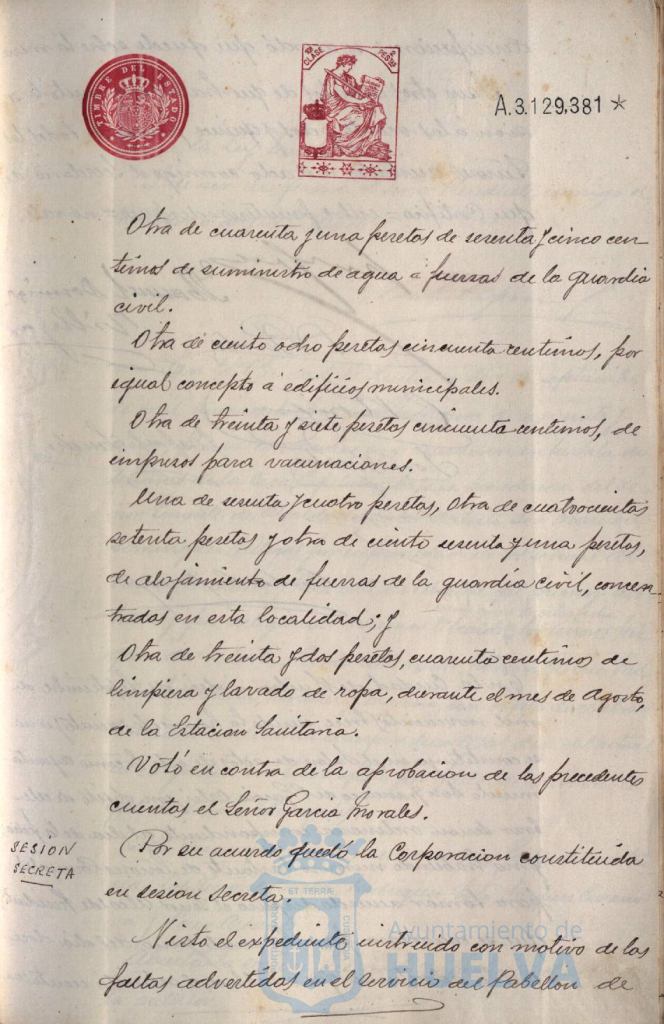 TIMBRE DEL ESTADO
10ª CLASE
2 PESTAS
A.3.129.381 *
Otra de cuarenta y una pesetas de sesenta y cinco cen-
timos de suministro de agua a fuerzas de la guardia
civil.
Otra de ciento ocho pesetas cincuenta centimos, por
igual concepto á edificios municipales.
Otra de treinta y siete pesetas cincuenta centimos, de
impresos para vacunaciones.
Una de sesenta y cuatro pesetas, otra de cuatrocientas
setenta pesetas y otra de ciento sesenta y una pesetas,
de alojamiento de fuerzas de la guardia civil, concen-
tradas en esta localidad; y
Otra de treinta y dos pesetas, cuarenta centimos de
limpieza y lavado de ropa, durante el mes de Agosto,
de la Estacion Sanitaria.
Votó en contra de la aprobacion de las precedentes
cuentas el Señor Garcia Morales.
SESION
SECRETA
Por su acuerdo quedó la Corporacion constituida
en sesion secreta.
Visto el expediente instruido con motivo de las
faltas advertidas en el servicio del Pabellon de
ET TERRÆ
Ayuntamiento de
HUELVA